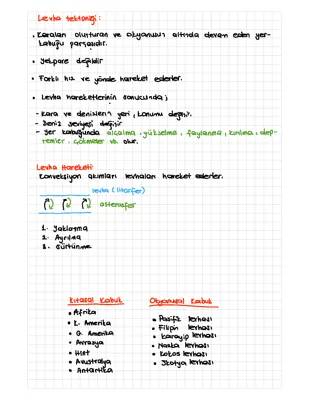 Levha tektoniği:
• Karaları oluşturan ve okyanusun altında devam eden yer-
kabuğu parçasıdır.
• Yekpare değildir
• Farklı hız ve yönde hareket ederler.
• Levha hareketlerinin sonucunda;
- Kara ve denizlerin yeri, konumu değişir.
- Deniz seviyesi değişir
- Yer kabuğunda alçalma, yükselme, faylanma, kırılma, dep-
remler, çökmeler vb. olur.
Levha Hareketi:
Konveksiyon akımları levhaları hareket ederler.
levha (litosfer)
astenosfer
1. Yaklaşma
2. Ayrılma
3. Sürtünme
Kıtasal Kabuk
• Afrika
• K. Amerika
• G. Amerika
• Avrasya
• Hint
• Avustralya
• Antartika
Okyanusal Kabuk
• Pasifik levhası
• Filipin levhası
• Karayip levhası
• Nazka levhası
• Kokos levhası
• Skotya levhası